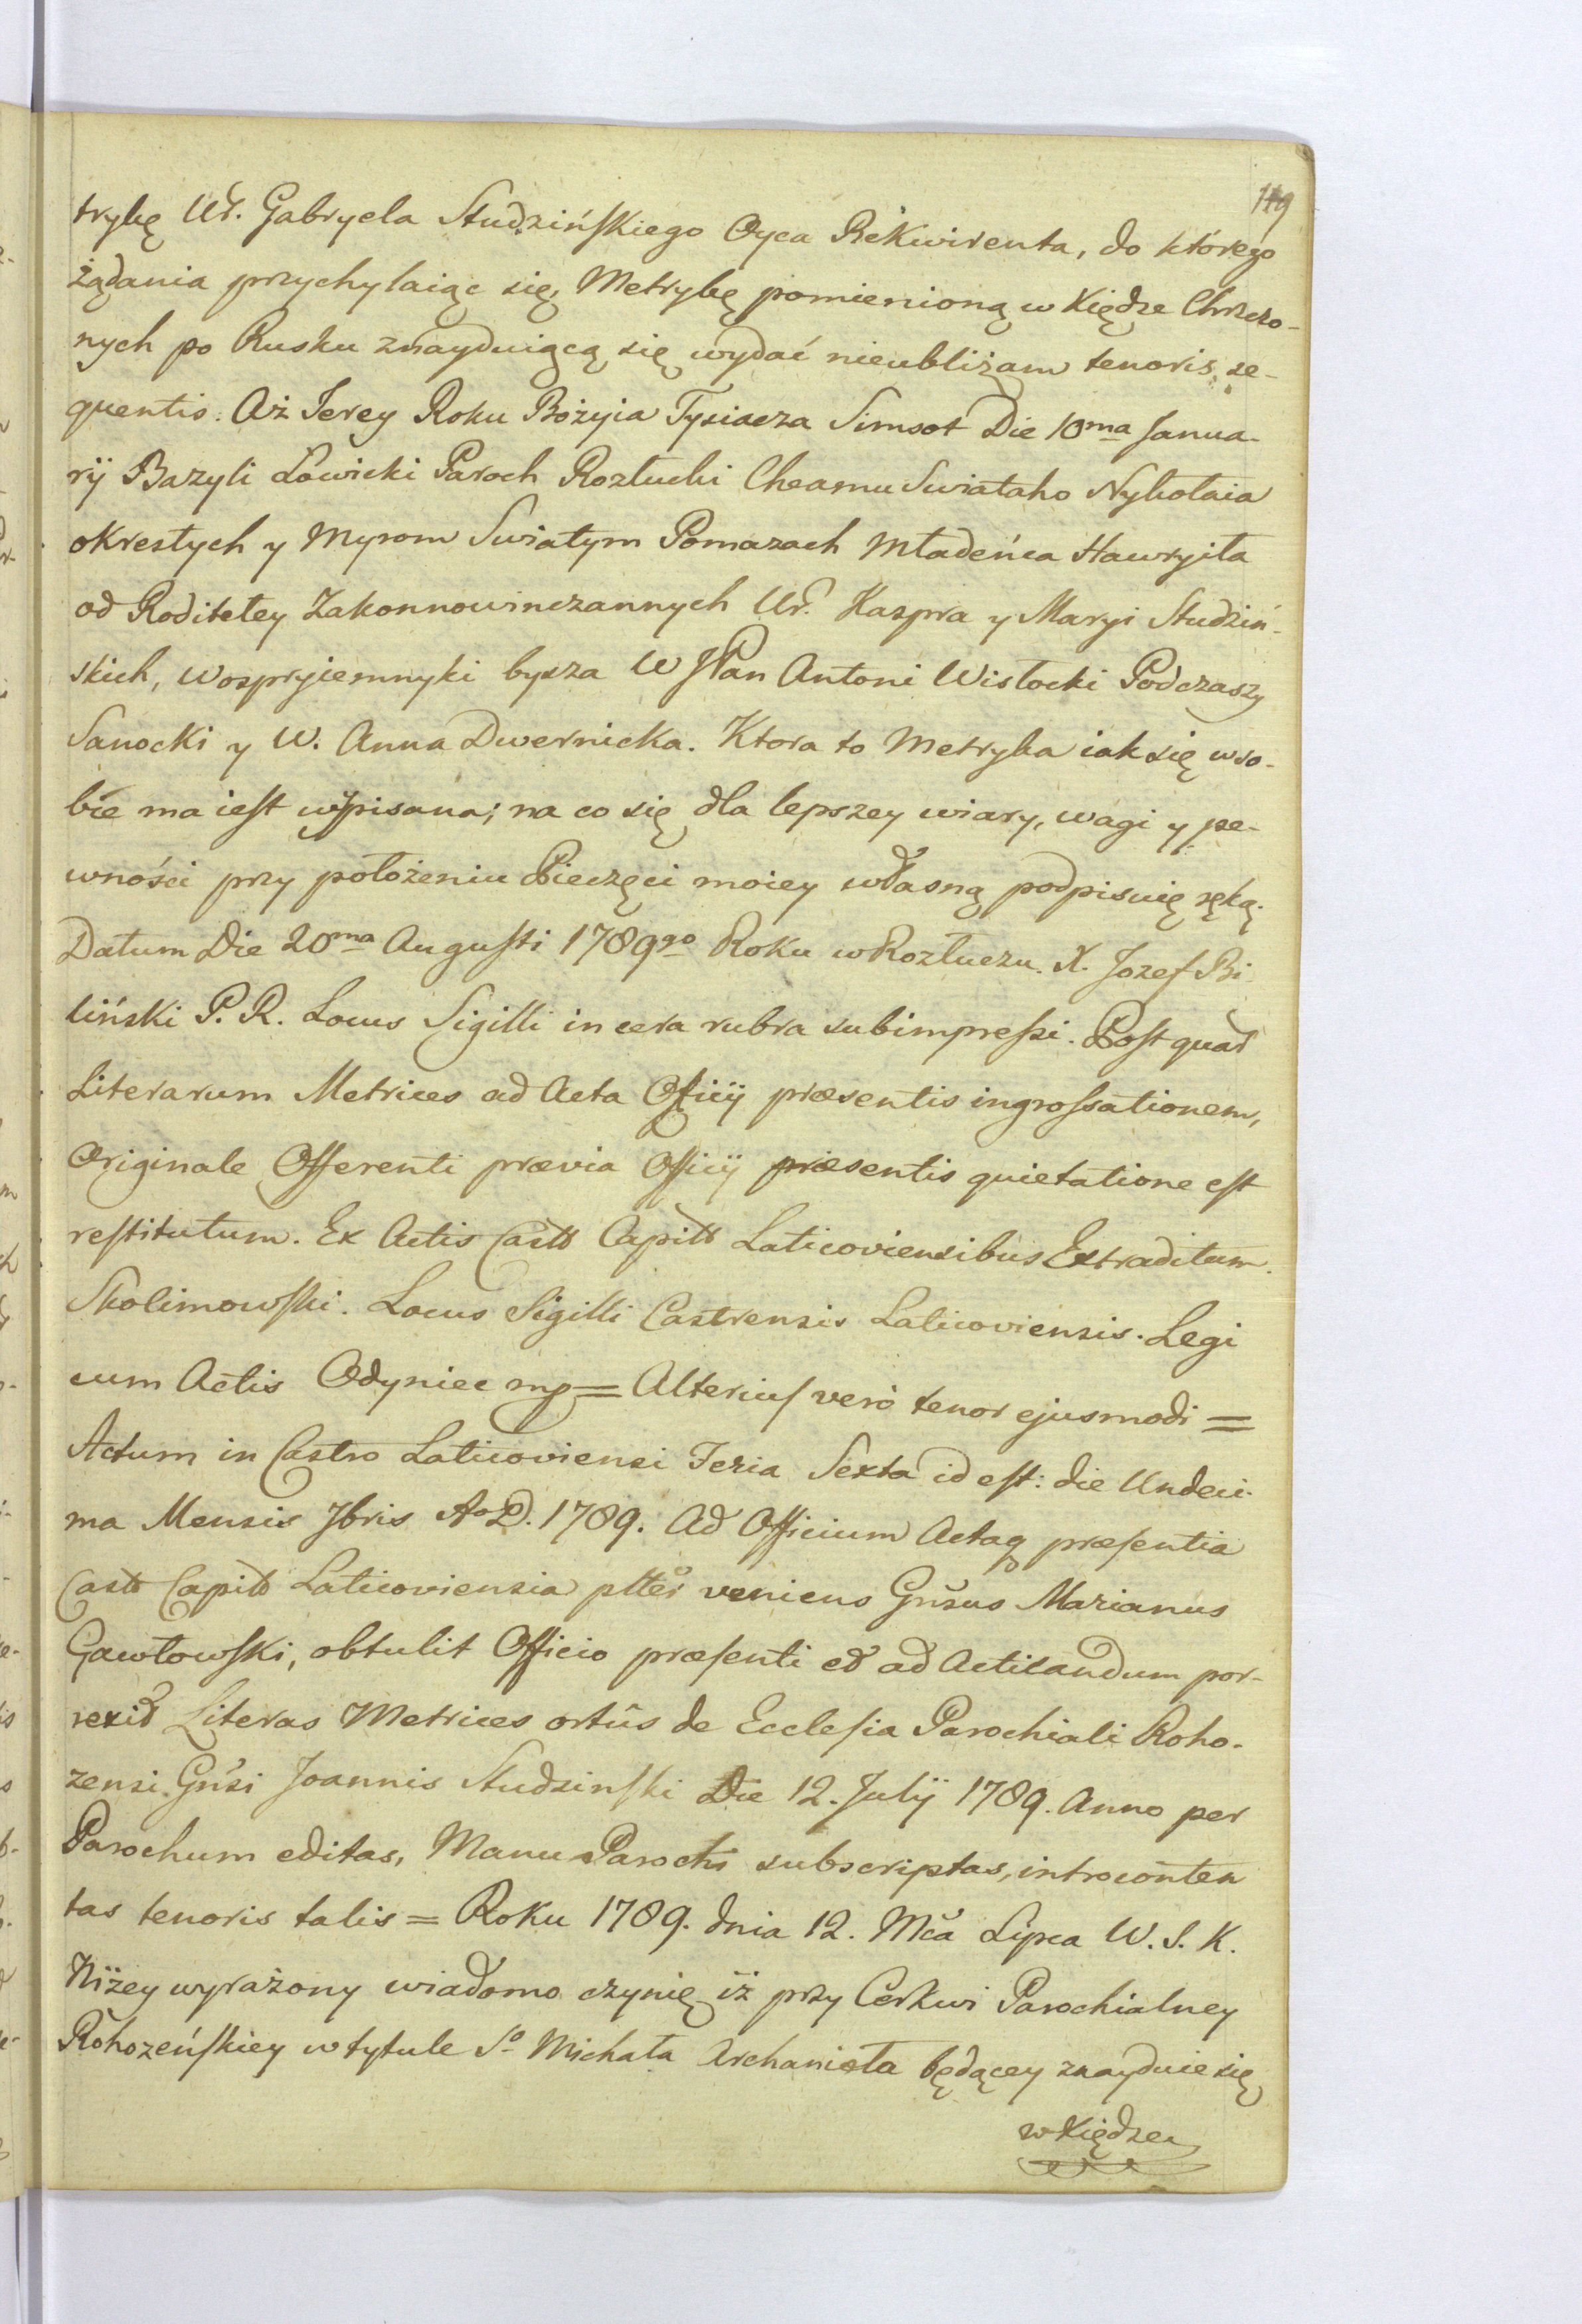 119
trykę Ur. Gabryela Studzińskiego Oyca Rekwirenta, do którego
żądania przychylaiąc się, Metrykę pomienioną w Xiędze Chrzczo-
nych po Rusku znayduiącą się wydać nieubliżam tenoris se-
quentis: Aż Jerey Roku Bożyia Tysiacza Simsot Die 10ma Janua-
rij Bazyli Łowicki Paroch Roztucki Cheamu Swiataho Nykołaia
okrestych y Myrom Swiatym Pomazach Mładeńca Hawryiła
od Roditeley Zakonnowinczannych Ur. Kaspra y Maryi Studziń-
skich, Wospryiemnyki bysza W JPan Antoni Wisłocki Podczaszy
Sanocki y W. Anna Dwernicka. Ktora to Metryka iak się w so-
bie ma iest wypisana; na co się dla lepszey wiary, wagi y pe-
wności przy położeniu Pieczęci moiey własną podpisuię ręką.
Datum Die 20ma Augusti 1789go Roku w Roztuczu. X. Jozef Bi
liński P. R. Locus Sigilli in cera rubra subimpressi. Post quar
Literarum Metrices ad Acta Officij præsentis ingrossationem,
Originale Offerenti prævia Officij præsentis quietatione est
restitutum. Ex Actis Castt Capitt Laticoviensibus Extraditum.
Skolimowski. Locus Sigilli Castrensis Laticoviensis. Legi
cum Actis Odyniec mp = Alterius verò tenor ejusmodi =
Actum in Castro Laticoviensi Feria Sexta id est: die Undeci-
ma Mensis 7bris Ao D. 1789. Ad Officium Actaq præsentia
Castt Capitt Laticoviensia pltter veniens Gnsus Marianus
Gawłowski, obtulit Officio præsenti et ad Acticandum por-
rexit Literas Metrices ortûs de Ecclesia Parochiali Roho-
zensi Gnsi Joannis Studzinski Die 12. Julij 1789. Anno per
Parochum editas, Manu Parochi subscriptas, introconten
tas tenoris talis = Roku 1789. dnia 12. Mca Lipca W. S. K.
Niżey wyrażony wiadomo czynię iż przy Cerkwi Parochialney
Rohozeńskiey w tytule So Michała Archanioła będącey znayduie się
w Xiędze